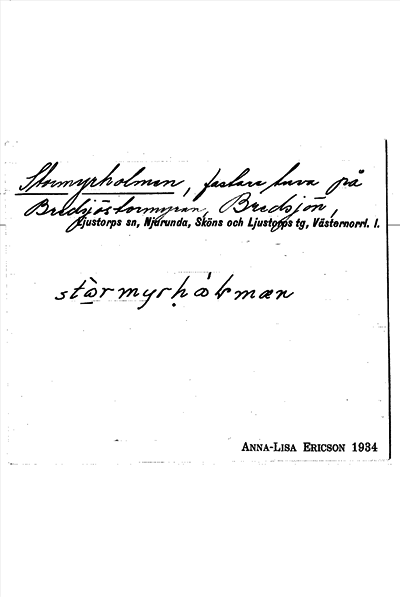 Stormyrholmen, fastare tuva på
Bredsjöstormyran, Bredsjön,
Ljustorps sn, Njurunda, Sköns och Ljustorps tg, Västernorrl. l.
stòrmyrḥòɫmæn
ANNA-LISA ERICSON 1934